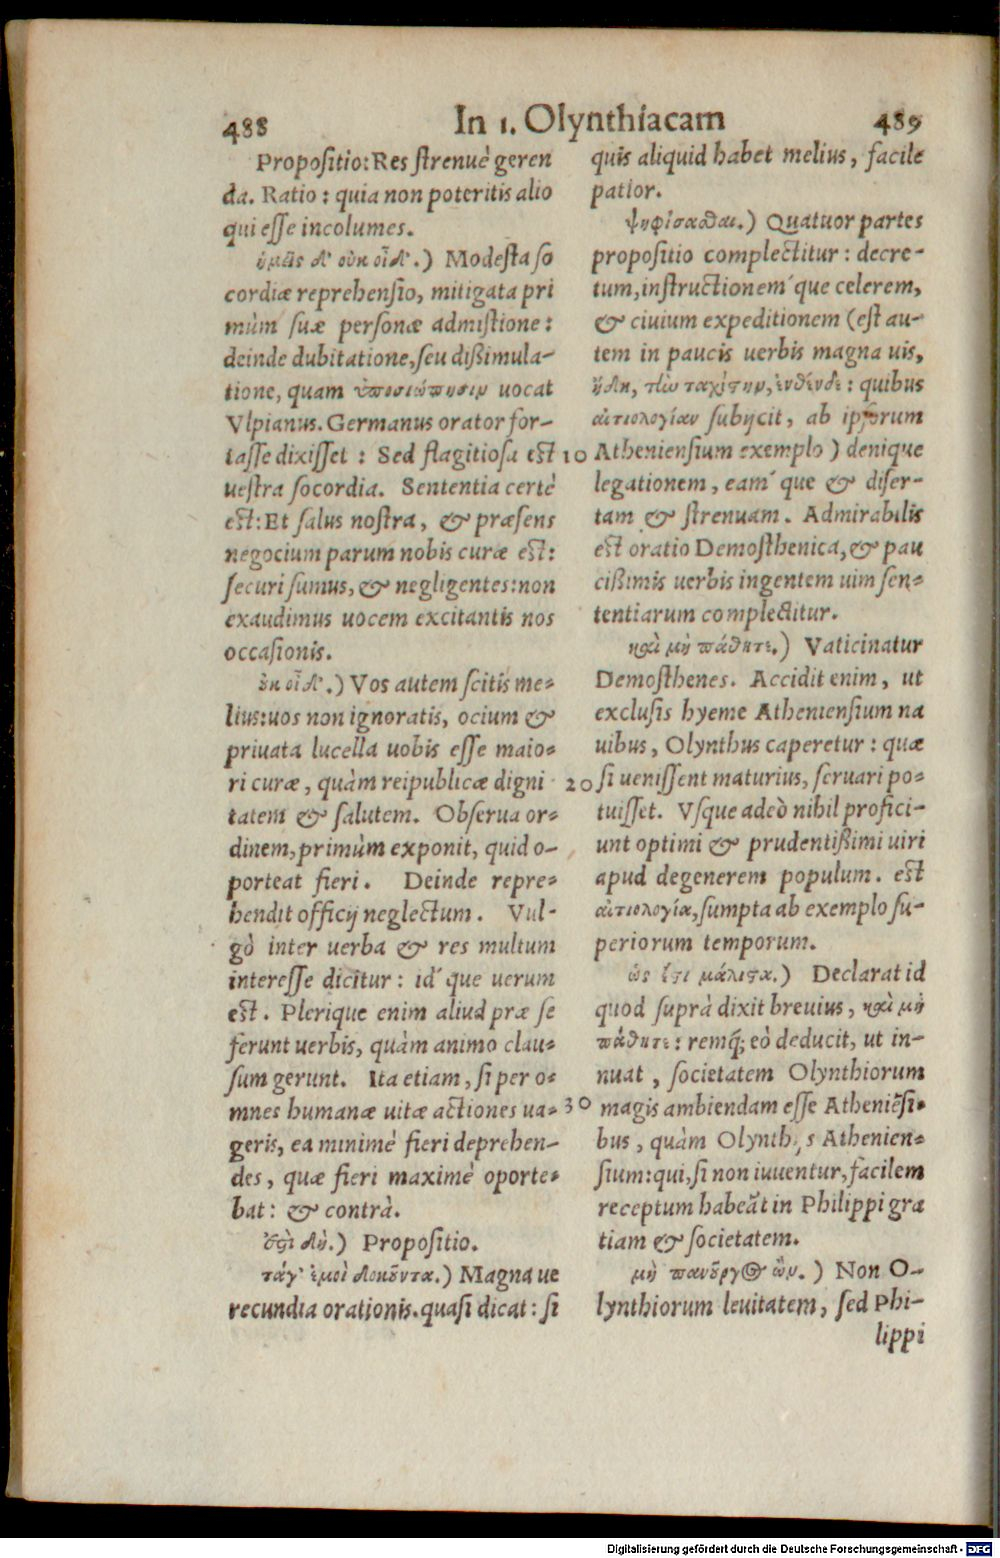 488
In 1. Olynthiacam
489
Propositio: Res strenuè geren
da. Ratio: quia non poteritis alio
qui esse incolumes.
ἡμεῖς δ' οὐκ οἶδ'.) Modesta so
cordiæ reprehensio, mitigata pri
mùm suæ personæ admistione:
deinde dubitatione, seu dißimula-
tione, quam ὑποσιώπησιν uocat
Vlpianus. Germanus orator for-
tasse dixisset: Sed flagitiosa est
uestra socordia. Sententia certè
est: Et salus nostra, & præsens
negocium parum nobis curæ est:
securi sumus, & negligentes: non
exaudimus uocem excitantis nos
occasionis.
ἐκ οἶδ'.) Vos autem scitis me-
lius: uos non ignoratis, ocium &
priuata lucella uobis esse maio-
ri curæ, quàm reipublicæ digni
tatem & salutem. Obserua or-
dinem, primùm exponit, quid o-
porteat fieri. Deinde repre-
hendit officij neglectum. Vul-
gò inter uerba & res multum
interesse dicitur: id' que uerum
est. Plerique enim aliud præ se
ferunt uerbis, quàm animo clau-
sum gerunt. Ita etiam, si per o-
mnes humanæ uitæ actiones ua-
geris, ea minimè fieri deprehen-
des, quæ fieri maximè oporte-
bat: & contrà.
ἐστὶ δὴ.) Propositio.
τάγ' ἐμοὶ δοκοῦντα.) Magna ue
recundia orationis. quasi dicat: si
10
20
30
quis aliquid habet melius, facile
patior.
ψηφίσασθαι.) Quatuor partes
propositio complectitur: decre-
tum, instructionem' que celerem,
& ciuium expeditionem (est au-
tem in paucis uerbis magna uis,
ἤδη, τὴν ταχίστην, ἐνθένδε: quibus
αἰτιολογίαν subijcit, ab ipsorum
Atheniensium exemplo) denique
legationem, eam' que & diser-
tam & strenuam. Admirabilis
est oratio Demosthenica, & pau
cißimis uerbis ingentem uim sen-
tentiarum complectitur.
καὶ μὴ πάθητε.) Vaticinatur
Demosthenes. Accidit enim, ut
exclusis hyeme Atheniensium na
uibus, Olynthus caperetur: quæ
si uenissent maturius, seruari po-
tuisset. Vsque adeò nihil profici-
unt optimi & prudentißimi uiri
apud degenerem populum. est
αἰτιολογία, sumpta ab exemplo su-
periorum temporum.
ὡς ἔστι μάλιστα.) Declarat id
quod suprà dixit breuius, καὶ μὴ
πάθητε: remq́; eò deducit, ut in-
nuat, societatem Olynthiorum
magis ambiendam esse Atheniẽsi-
bus, quàm Olynth s Athenien-
sium: qui, si non iuuentur, facilem
receptum habeãt in Philippi gra
tiam & societatem.
μὴ πανοῦργος ὤν.) Non O-
lynthiorum leuitatem, sed Phi-
lippi
Digitalisierung gefördert durch die Deutsche Forschungsgemeinschaft - DFG